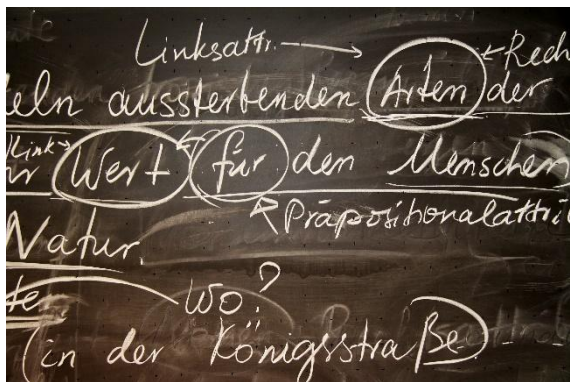 Linksattr. → ← Rech
eln aussterbenden Arten der
Wert für den Menschen
Präpositionalattri
Natur.
Wo?
(in der Königsstraße